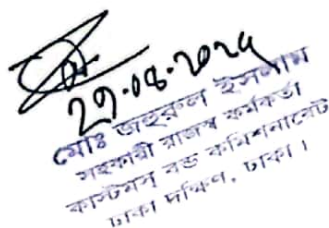 ২৭.০৪.২০২৫
মোঃ জহুরুল ইসলাম
সহকারী রাজস্ব কর্মকর্তা
কাস্টমস্ বন্ড কমিশনারেট
ঢাকা দক্ষিণ, ঢাকা।